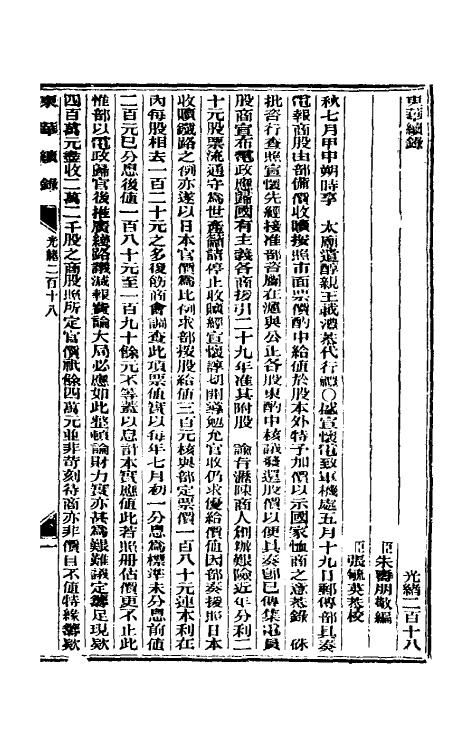 東華續錄
光緒二百十八
臣朱壽朋敬編
臣張毓英恭校
秋七月甲申朔時享 太廟遣醇親王載灃恭代行禮○盛宣懷電致軍機處五月十九日郵傳部具奏
電報商股由部備價收贖按照市面票價酌中給値於股本外特予加價以示國家恤商之意恭錄 硃
批咨行查照宣懷先經接准部咨屬在滬與公正各股東酌中核議發還股價以便具奏卽已傳集電員
股商宣布電政應歸國有主義各商援引二十九年准其附股 諭旨瀝陳商人創辦艱險近年分利二
十元股票流通守爲世產籲請停止收贖經宣懷諄切開導勉允官收仍求優給價値因部奏援照日本
收贖鐵路之例亦遂以日本官價爲比例求部按股給値三百元核與部定票價一百八十元連本利在
內每股相去一百二十元之多復飭商會調查此項票値實以每年七月初一分息爲標準未分息前値
二百元已分息後値一百八十元至一百九十餘元不等蓋以息計本實應値此若照册估價更不止此
惟部以電政歸官後推廣綫路議減報費論大局必應如此整頓論財力實亦甚爲艱難議定籌足現款
四百萬元盡收二萬二千股之商股照所定官價祇餘四萬元並非苛刻待商亦非價目不値特緣籌款
東華續錄 光緒二百十八 一